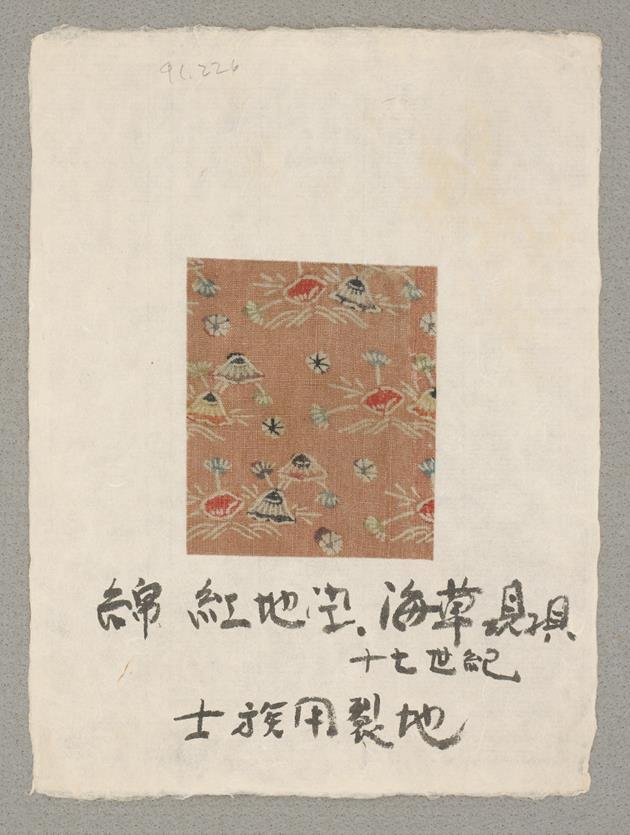 91.226
綿 紅地染、海草
十七世紀
士族用裂地